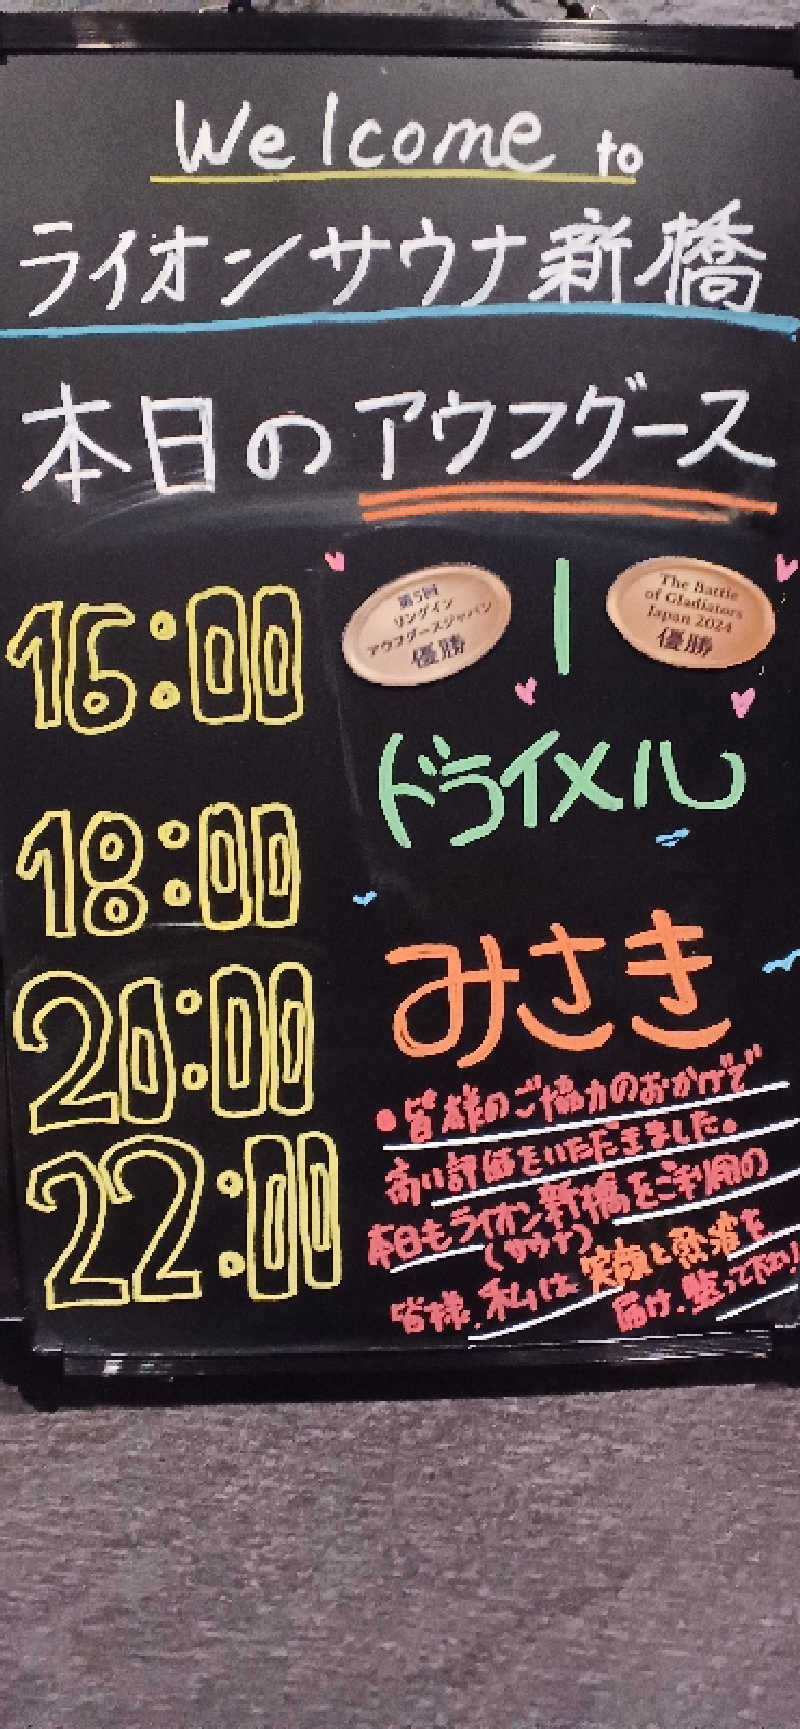 Welcome to
ライオンサウナ新橋
本日のアウフグース
16:00
第5回
リングイン
アウフグースジャパン
優勝
The Battle
of Gladiators
Japan 2024
優勝
ドライメル
18:00
20:00
みさき
22:00
・皆様のご協力のおかげで
高い評価をいただきました。
本日もライオン新橋をご利用の
(サウナ)
皆様、私は笑顔と熱波を
届け、整って下さい!